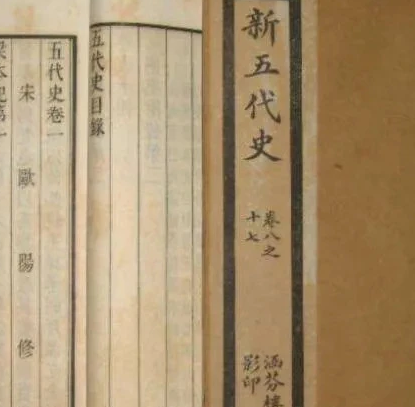 新五代史
卷八之
十七
涵芬樓
影印
五代史目錄
五代史卷一
宋 歐陽修
梁本紀第一